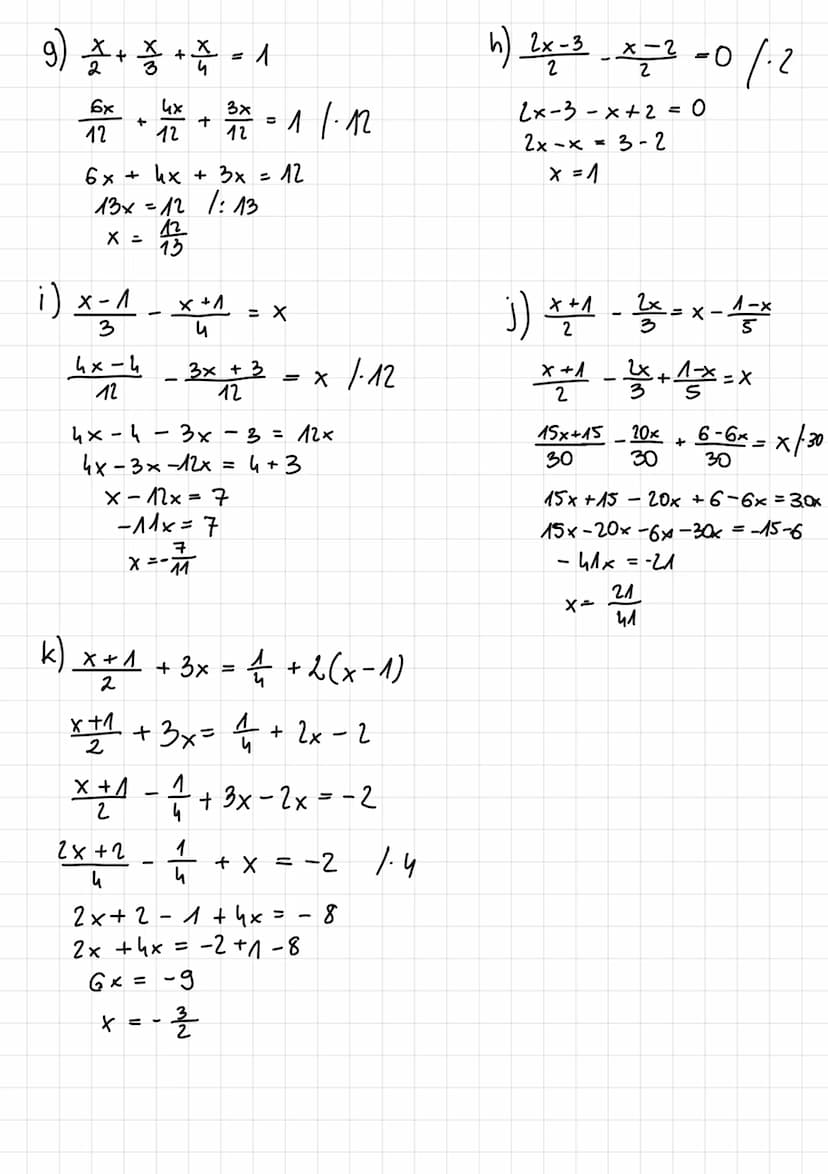 g) x/2 + x/3 + x/4 = 1
6x/12 + 4x/12 + 3x/12 = 1 /·12
6x + 4x + 3x = 12
13x = 12 /: 13
x = 12/13
h) (2x-3)/2 - (x-2)/2 = 0 /·2
2x-3 - x+2 = 0
2x-x = 3-2
x = 1
i) (x-1)/3 - (x+1)/4 = x
(4x-4)/12 - (3x+3)/12 = x /·12
4x - 4 - 3x - 3 = 12x
4x - 3x - 12x = 4+3
x - 12x = 7
-11x = 7
x = -7/11
j) (x+1)/2 - 2x/3 = x - (1-x)/5
(x+1)/2 - 2x/3 + (1-x)/5 = x
(15x+15)/30 - 20x/30 + (6-6x)/30 = x /·30
15x+15 - 20x + 6-6x = 30x
15x-20x-6x-30x = -15-6
-41x = -21
x = 21/41
k) (x+1)/2 + 3x = 1/4 + 2(x-1)
(x+1)/2 + 3x = 1/4 + 2x - 2
(x+1)/2 - 1/4 + 3x - 2x = -2
(2x+2)/4 - 1/4 + x = -2 /·4
2x+2 - 1 + 4x = -8
2x + 4x = -2+1-8
6x = -9
x = -3/2